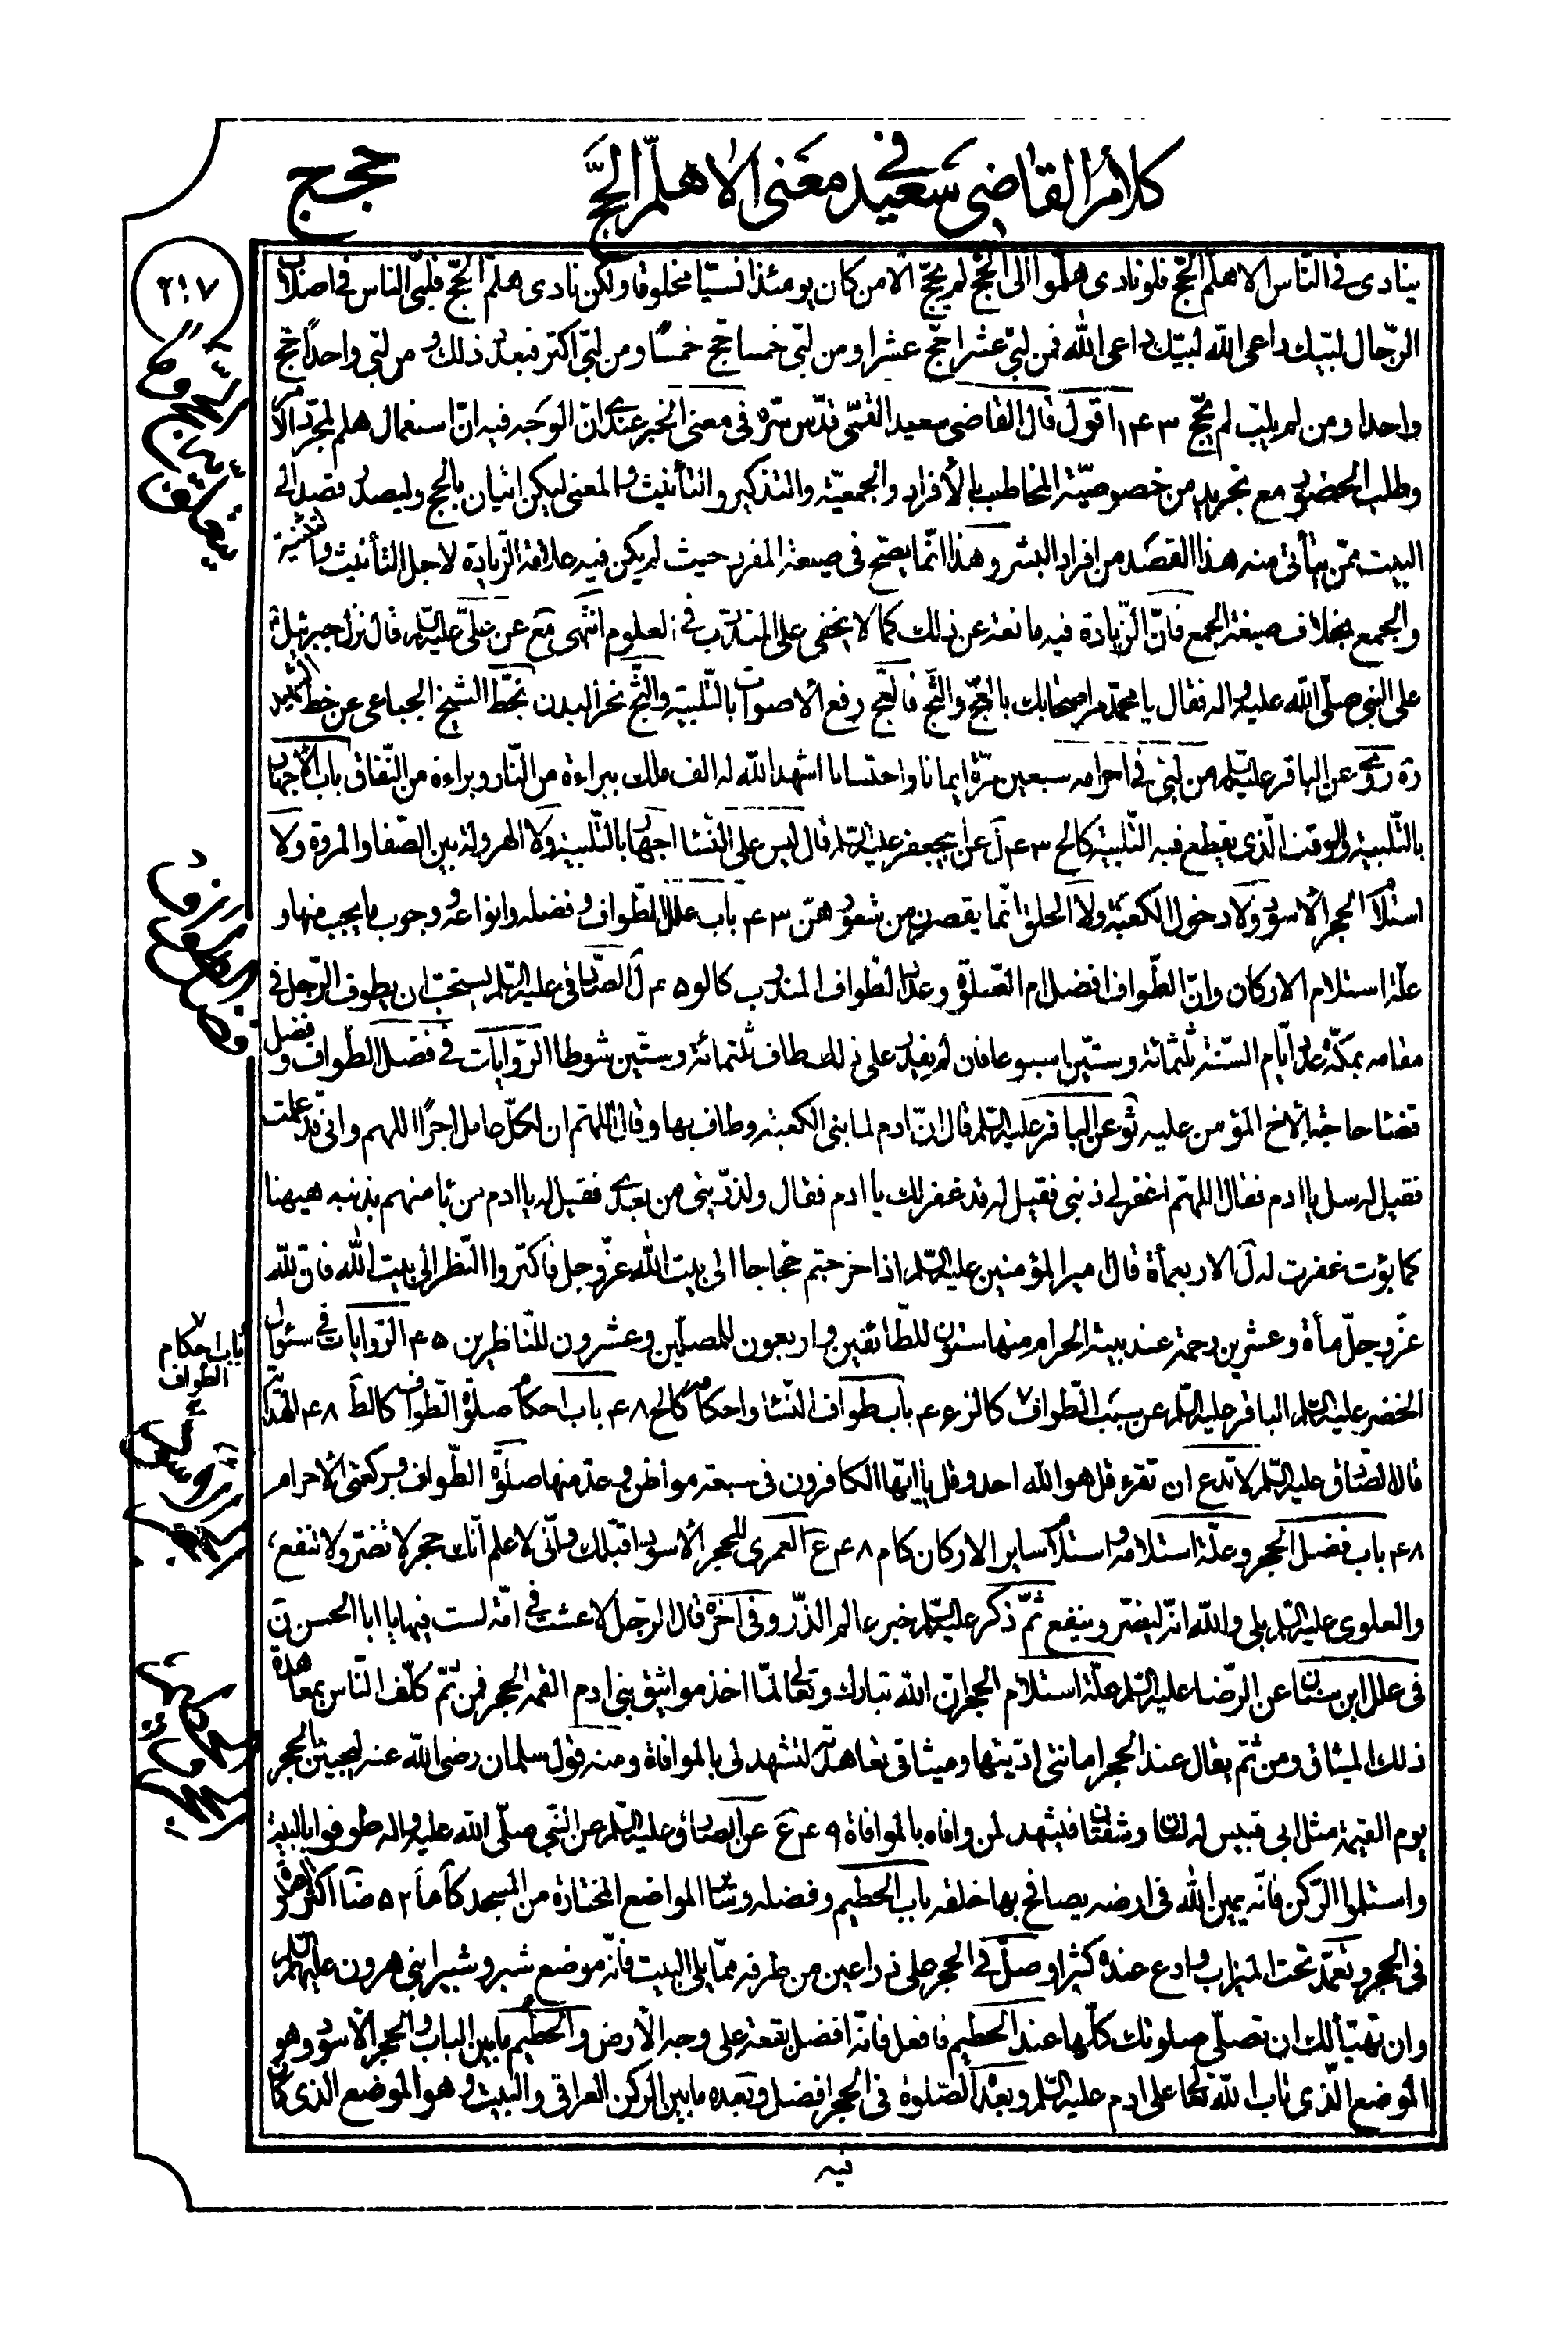 كلام القاضي سعيد في معنى الا هلم الحج
حجج
٢١٧
ينادى فى النّاس الا هلمّ الحجّ فلو نادى هلمّوا الى الحجّ لم يحجّ الّا من كان يومئذ انسيّا مخلوقا ولكن نادى هلمّ الحجّ فلبّى الناس فى اصلاب
الرّجال لبّيك داعى الله لبّيك داعى الله فمن لبّى عشرا حجّ عشرا ومن لبّى خمسا حجّ خمسًا ومن لبّى اكثر فبعدد ذلك ومن لبّى واحدًا حجّ
واحدا ومن لم يلبّ لم يحجّ ٤٣ ١ اقول قال القاضى سعيد القمّى قدّس سرّه فى معنى الخبر عندى انّ الوجه فيه انّ استعمال هلم لمجرّد الامر
وطلب الحضور مع تجريده من خصوصيّة المخاطب بالأفراد والجمعيّة والتذكير والتأنيث والمعنى ليكن اتيان بالحج وليصدر قصد الى
البيت ممّن يتأتى منه هذا القصد من افراد البشر وهذا انّما يصحّ فى صيغة المفرد حيث لم يكن فيه علامة الزّيادة لاجل التأنيث والتثنية
والجمع بخلاف صيغة الجمع فانّ الزّيادة فيه مانعة عن ذلك كما لا يخفى على المتدرّب فى العلوم انتهى مع عن علىّ عليه السلم قال نزل جبرئيل
على النبى صلّى الله عليه واله فقال يا محمّد مر اصحابك بالعجّ والثجّ فالعجّ رفع الاصوات بالتّلبية والثجّ نحر البدن بخّط الشيخ الجباعى عن خط الشهيد
ره روى عن الباقر عليه السلم من لبّى فى احرامه سبعين مرّة ايمانا واحتسابا اشهد الله له الف ملك ببراءة من النّار وبراءة من النّفاق باب الاجهار
بالتّلبية والوقت الّذى يقطع فيه التّلبية كالح ٤٣ ل عن ابيجعفر عليه السلم قال ليس على النّساء اجهار بالتّلبية ولا الهرولة بين الصّفا والمروة ولا
استلام الحجر الاسود ولا دخول الكعبة ولا الحلق انّما يقصرن من شعورهنّ ٤٣ باب علل الطّواف وفضله وانواعه ووجوب ما يجب منها و
علّة استلام الاركان وانّ الطّواف افضل ام الصّلوة وعدد الطّواف المندوب كالو ٤٥ ل الصّادق عليه السلم يستحبّ ان يطوف الرّجل فى
مقامه بمكّة عدد ايّام السّنة ثلثمائة وستّين اسبوعا فان لم يقدر على ذلك طاف ثلثمائة وستّين شوطا الرّوايات فى فضل الطّواف وفضل
قضاء حاجة الاخ المؤمن عليه ثو عن الباقر عليه السلم قال انّ ادم لما بنى الكعبة وطاف بها وقال اللهمّ ان لكلّ عامل اجرًا اللهم وانى قد عملت
فقيل له سل يا ادم فقال اللهمّ اغفر لى ذنبى فقيل له قد غفر لك يا ادم فقال ولذرّيتى من بعدى فقيل له يا ادم من باء منهم بذنبه هيهنا
كما بؤت غفرت له ل الاربعمأة قال امير المؤمنين عليه السّلم اذا خرجتم حجاجا الى بيت الله عزّوجل فاكثروا النّظر الى بيت الله فانّ لله
عزّوجلّ مأة وعشرين رحمة عند بيته الحرام منها ستون للطّائفين واربعون للمصلّين وعشرون للنّاظرين ٤٥ الرّوايات فى سئوال
الخضر عليه السلم الباقر عليه السّلم عن سبب الطّواف كالز ٤٦ باب طواف النّساء واحكامه كالح ٤٨ باب احكام صلوة الطّواف كالط ٤٨ الهداية
قال الصّادق عليه السّلم لا تدع ان تقرء قل هو الله احد وقل يا ايّها الكافرون فى سبعة مواطن وعدّ منها صلوة الطّواف وركعتى الاحرام
٤٨ باب فضل الحجر وعلّة استلامه واستلام ساير الاركان كام ٤٨ ع العمرى للحجر الاسود اقبّلك وانّى لاعلم انّك حجر لا تضرّ ولا تنفع،
والعلوى عليه السّلم بلى والله انّه ليضرّ وينفع ثمّ ذكر عليه السّلم خبر عالم الذّر وفى اخره قال الرّجل لا عشت فى امّة لست فيها يا ابا الحسن ن
فى علل ابن سنان عن الرّضا عليه السّلم علّة استلام الحجر انّ الله تبارك وتعالى لمّا اخذ مواثيق بنى ادم القمه الحجر فمن ثمّ كلّف النّاس بمعاهدة
ذلك الميثاق ومن ثمّ يقال عند الحجر امانتى ادّيتها وميثاقى تعاهدته لتشهد لى بالموافاة ومنه قول سلمان رضى الله عنه ليجيئنّ الحجر
يوم القيمة مثل ابى قبيس له لسان وشفتان فيشهد لمن وافاه بالموافاة ٤٩ ع عن الصّادق عليه السّلم عن النّبى صلّى الله عليه واله طوفوا بالبيت
واستلموا الرّكن فانّه يمين الله فى ارضه يصافح بها خلقه باب الحطيم وفضله وساير المواضع المختارة من المسجد كاما ٥٢ ضا اكثر الصلوة
فى الحجر وتعمّد تحت الميزاب وادع عنده كثيرا وصلّ فى الحجر على ذراعين من طرفه ممّا يلى البيت فانّه موضع شبر وشبير ابنى هرون عليهم السّلم
وان تهيّأ لك ان تصلّى صلوتك كلّها عند الحطيم فافعل فانّه افضل بقعة على وجه الأرض والحطيم ما بين الباب والحجر الاسود وهو
الموضع الّذى تاب الله تعالى على ادم عليه السّلم وبعده الصّلوة فى الحجر افضل وبعده ما بين الرّكن العراقى والبيت وهو الموضع الذى كان
باب احكام
الطواف
فيه